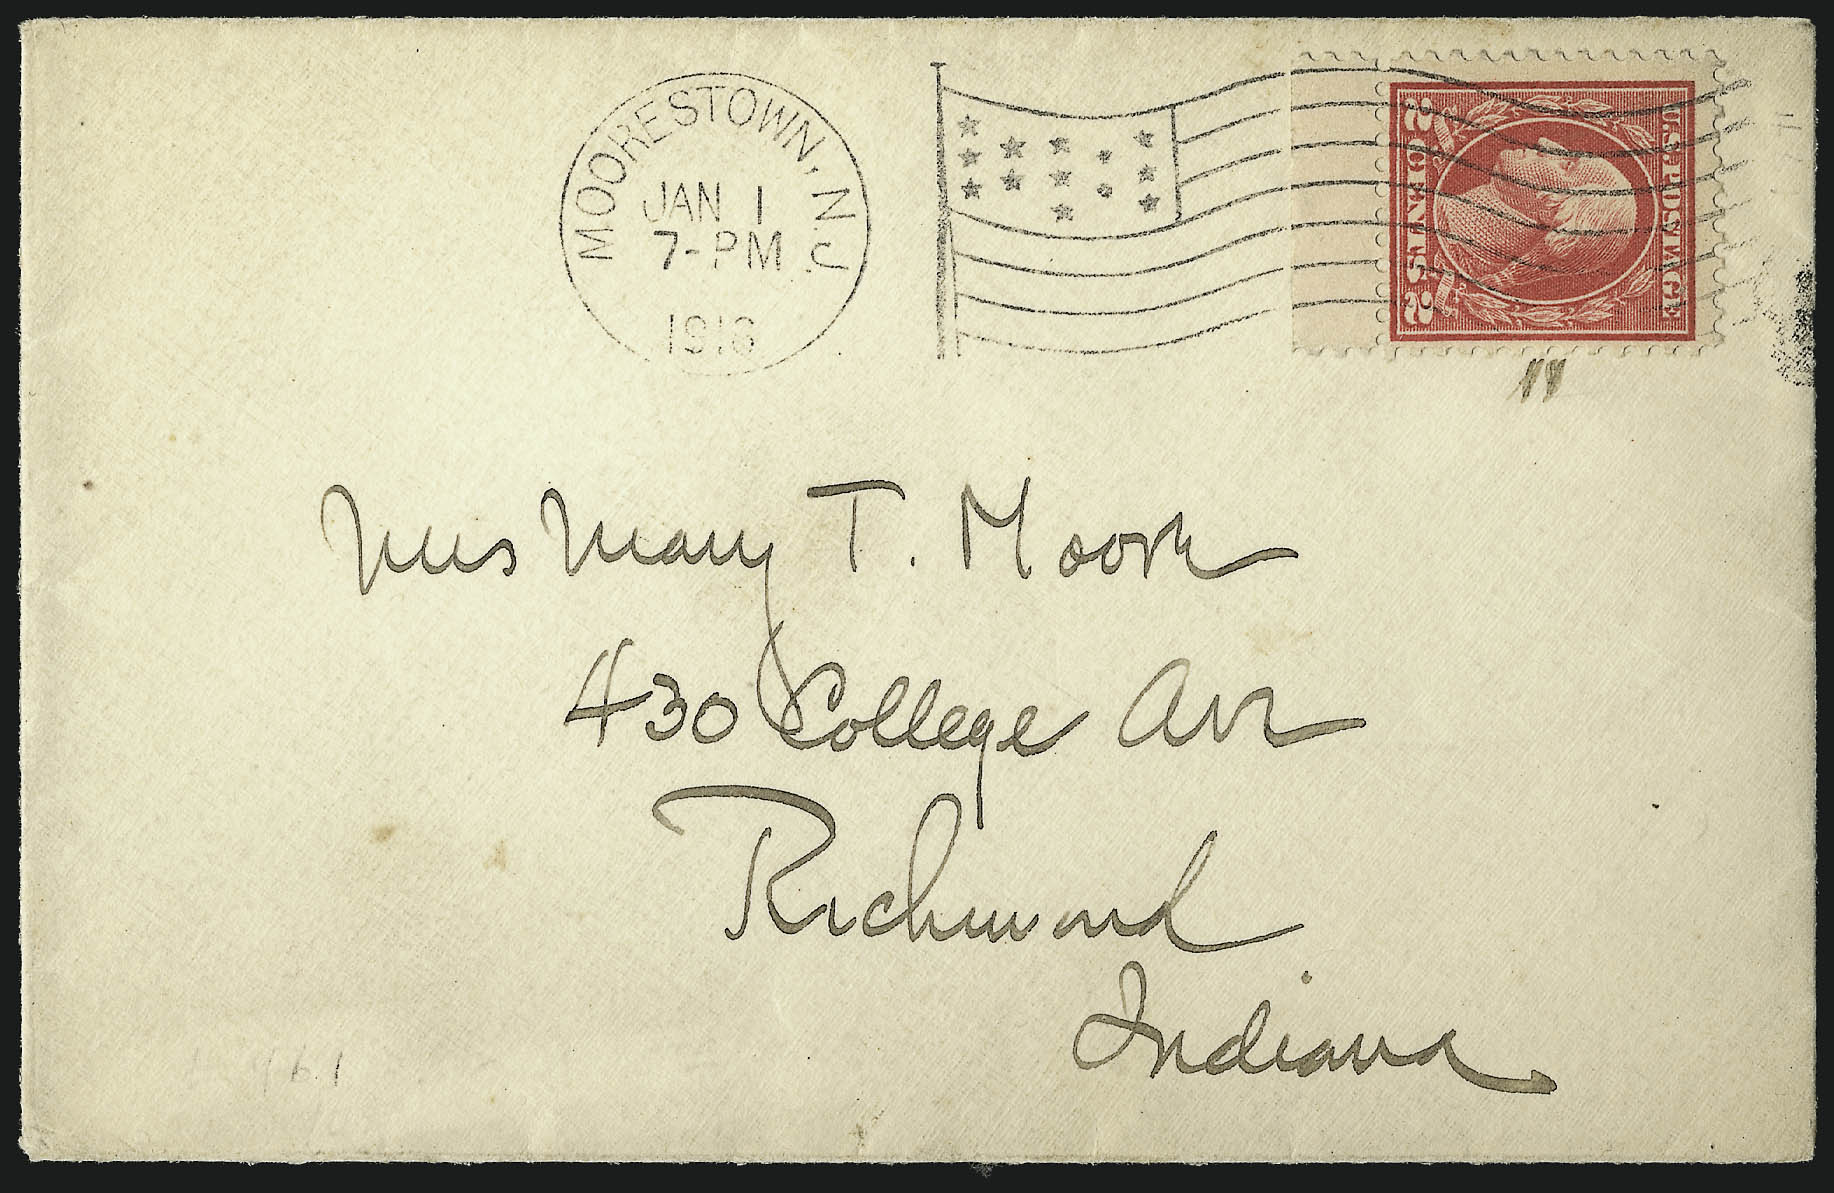 MOORESTOWN, N.J.
JAN 1
7-PM
1916
U.S. POSTAGE
2 CENTS 2
Mrs Mary T. Moore
430 College Ave
Richmond
Indiana